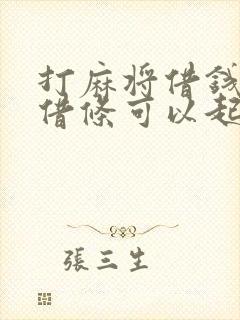 打麻将借錢
借條可以起
張三生